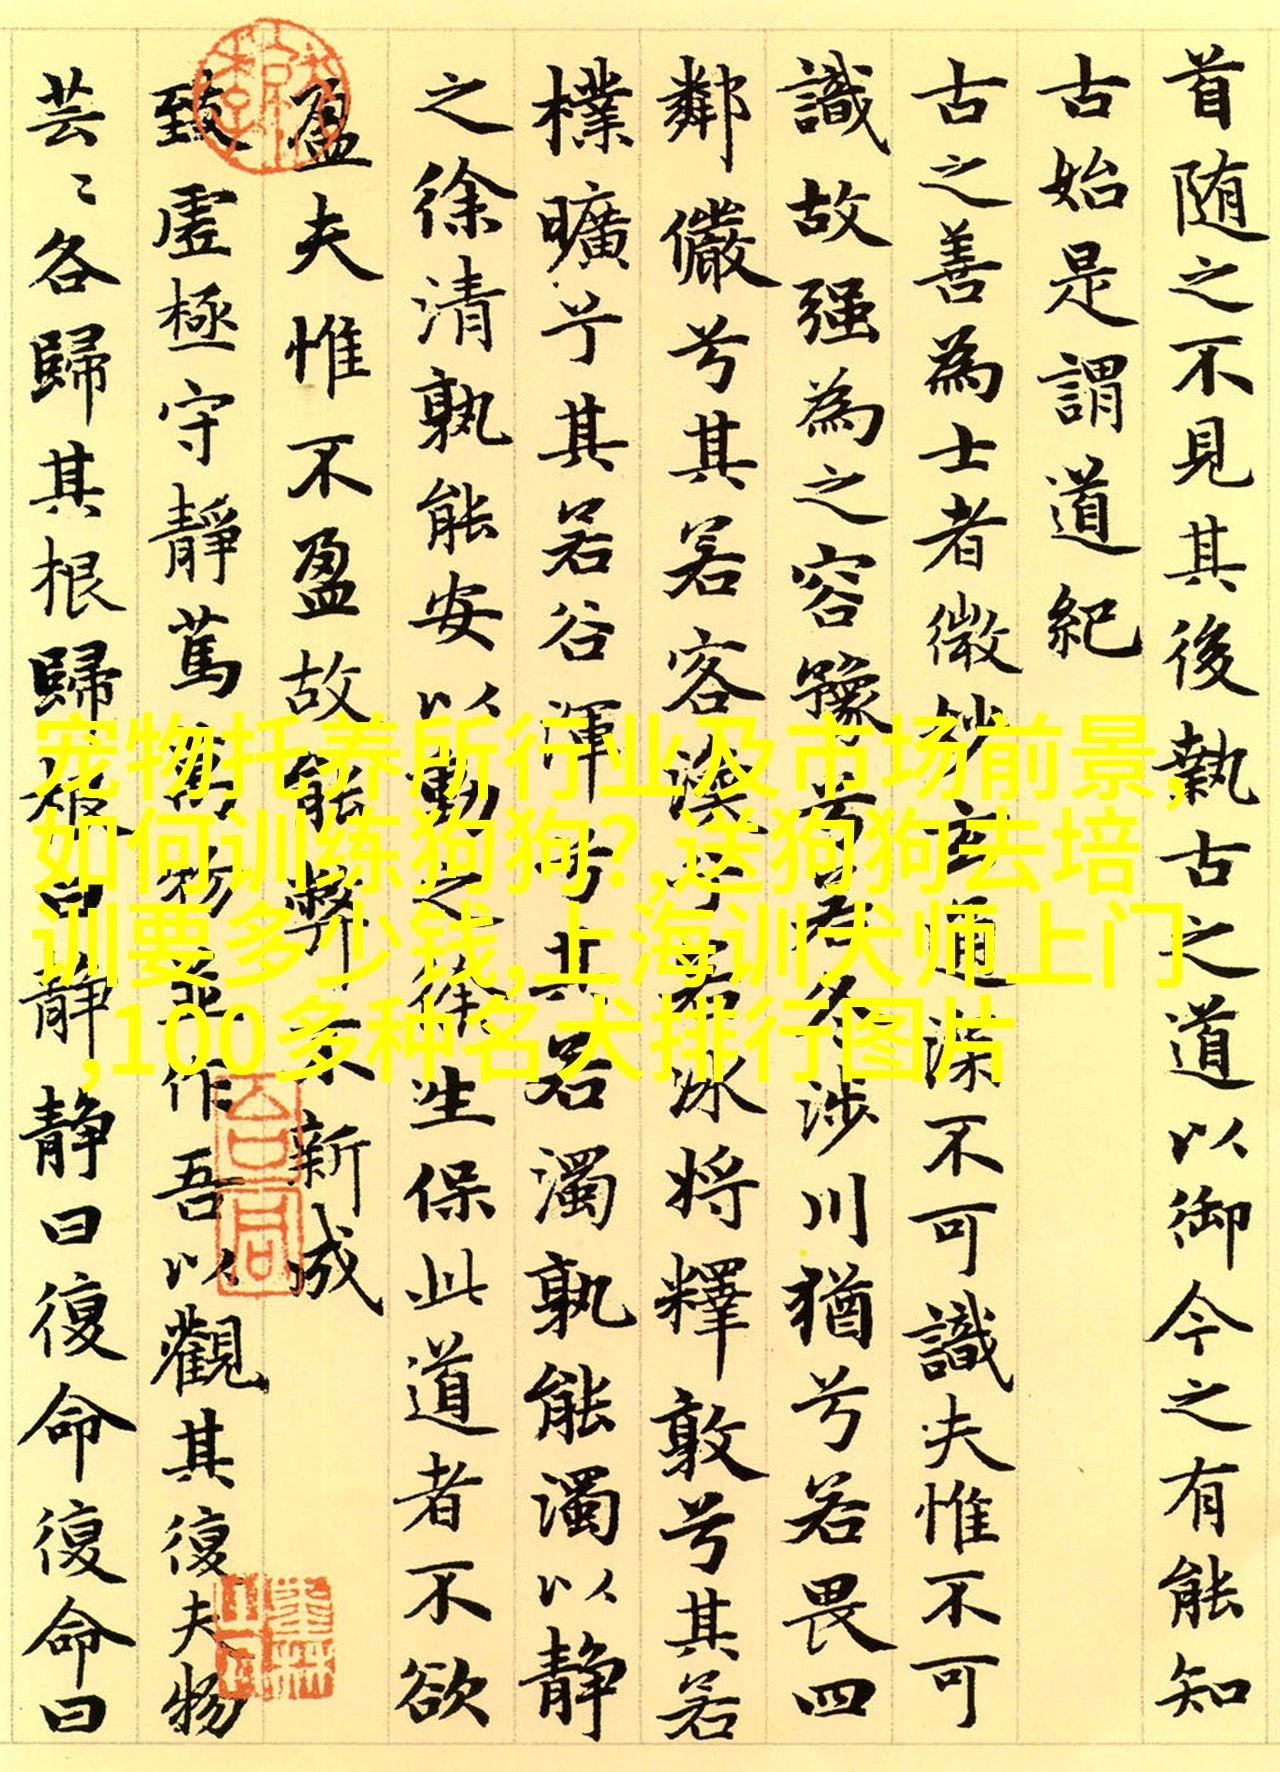 首随之不見其後執古之道以御今之有能知
古始是謂道紀
古之善為士者微妙玄通深不可識夫惟不可
識故强為之容豫兮若冬涉川猶兮若畏四
鄰儼兮其若客渙兮若冰将釋敦兮其若
樸曠兮其若谷渾兮其若濁孰能濁以静
之徐清孰能安以動之徐生保此道者不欲
盈夫惟不盈故能弊不新成
致虚極守靜篤萬物並作吾以觀其復夫物
芸〻各歸其根歸根曰静静曰復命復命曰
宠物托养所行业及市场前景,
如何训练狗狗?,送狗狗去培
训要多少钱,上海训犬师上门
,100多种名犬排行图片